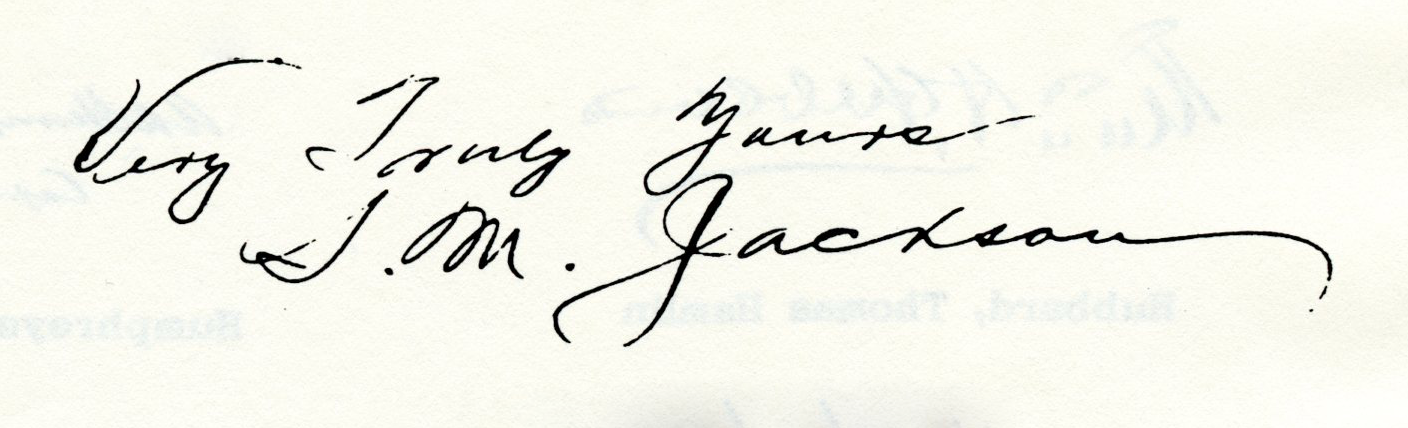 Very Truly Yours
T. M. Jackson
Hubbard, Thomas Hamlin
Humphreys